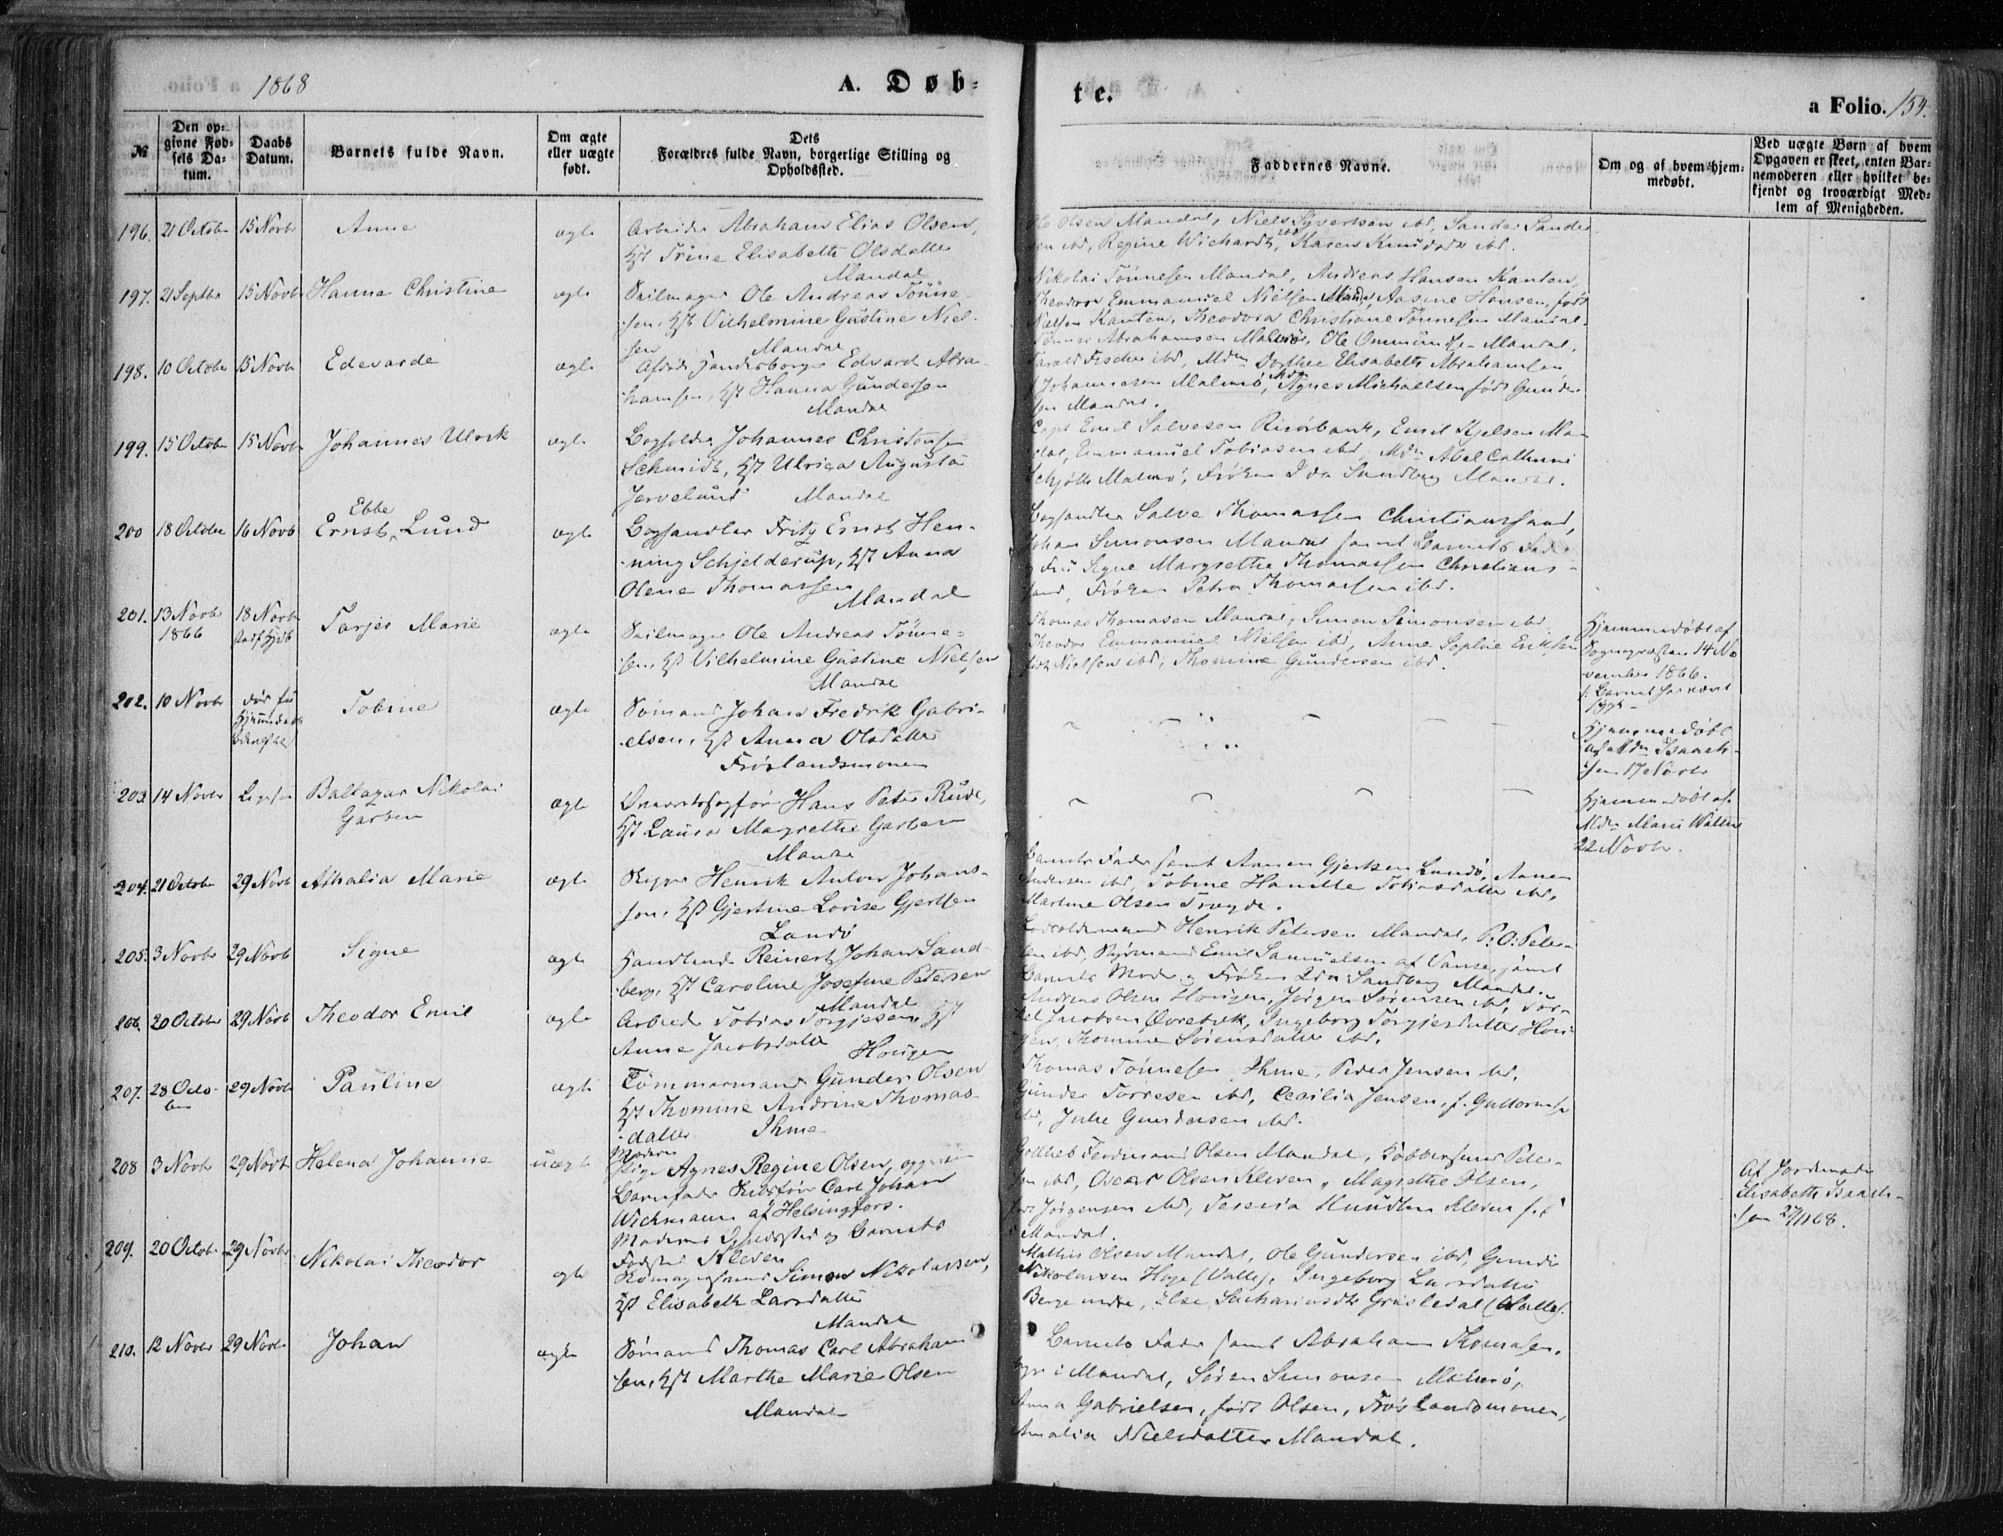 1868
A. Døb-
te.
a Folio. 154.
№
Den op-
givne Fød-
sels Da-
tum.
Daabs
Datum.
Barnets fulde Navn.
Om ægte
eller uægte
født.
Dets
Forældres fulde Navn, borgerlige Stilling og
Opholdssted.
Faddernes Navne.
Om og af hvem hjem-
medøbt.
Ved uægte Børn af hvem
Opgaven er skeet, enten Bar-
nemoderen eller hvilket be-
kjendt og troværdigt Med-
lem af Menigheden.
196. 21 Octobr 15 Novbr Anne ægte Arbeider Abraham Elias Olsen,
Trine Elisabeth Olsdatter
Mandal
Ole Olsen Mandal, Niels Syvertsen ibd, Sander Sander-
sen ibd, Regine Wichardt ibd, Karen Knudsdtr ibd.
197. 21 Septbr 15 Novbr Hanne Christine ægte Seilmager Ole Andreas Tønne-
sen, Hst Vilhelmine Gustine Niel-
sen Mandal
Nikolai Tønnesen Mandal, Andreas Hansen Kanten,
Theodor Emmanuel Nielsen Mandal, Aasine Hansen, født
Nielsen Kanten, Theodora Christiane Tønnesen Mandal.
198. 10 October 15 Novbr Edevarde ægte Handelsborger Edvard Abra-
hamsen, Hst Hanna Gundersen
Mandal
Tønnes Abrahamsen Malmø, Ole Ommundsen Mandal,
Fischer ibd, Mdm Dorthea Elisabeth Abrahamsen
f. Johannesen Malmø, Mdm Agnes Michaelsen født Gunder-
sen Mandal.
199. 15 October 15 Novbr Johannes Ulrik ægte Bogholder Johannes Christensen
Schmidt, Hst Ulrica Augusta
Jervelund Mandal
Capt Emil Salvesen Risørbank, Emil Kjelsen Man-
dal, Emmanuel Tobiasen ibd, Mdm Abel Cathrine
Schjøtt Malmø, Frøken Ida Sandberg Mandal.
200 18 October 16 Novb Ernst Ebbe Lund ægte Boghandler Fritz Ernst Hen-
ning Schjelderup, Hst Anna
Olene Thomassen
Mandal
Boghandler Salve Thomassen Christianssand,
Johan Simonsen Mandal samt Barnets Fader
og Fru Signe Margrethe Thomassen Christians-
sand, Frøken Petra Thomassen ibd.
201. 13 Novbr
1866 18 Novbr
Tarjer Marie ægte Seilmager Ole Andreas Tønne-
sen, Hst Vilhelmine Gustine Nielsen
Mandal
Thomas Thomasen Mandal, Simon Simonsen ibd,
Theodor Emmanuel Nielsen ibd, Anne Sophie Eriksen
født Nielsen ibd, Thomine Gundersen ibd.
Hjemmedøbt af
Sognepresten 14 No-
vember 1866.
202. 10 Novbr Tobine ægte Sømand Johan Fredrik Gabri-
elsen, Hst Anna Olsdatter
Frøslandsmonen
Hjemmedøbt
af Mdm Isaach-
sen 17 Novbr
203. 14 Novbr Ligesaa Baltazar Nikolai
Garben ægte Overretssagfører Hans Peter Rude,
Hst Laura Margrethe Garben
Mandal
Hjemmedøbt af
Mdm Marie Walter
22 Novbr.
204. 21 Octobr 29 Novb Athalia Marie ægte Skipper Henrik Anton Johans-
sen, Hst Gjertine Lovise Gjertsen
Landø
Barnets Fader samt Aanen Gjertsen Landø, Aanen
Andersen ibd, Tobine Hanette Tobiasdatter ibd,
Martine Olsen Trygde.
205. 3 Novbr 29 Novb Signe ægte Handlende Reinert Johan Sand-
berg, Hst Caroline Josefine Petersen
Mandal
Henrik Petersen Mandal, P: O: Peter-
sen ibd, Styrmand Emil Samuelsen af Vanse, samt
Barnets Moder og Frøken Ida Sandberg Mandal.
206. 20 October 29 Novb Theodor Emil ægte Arbeider Tobias Torgjesen, Hst
Anne Jacobsdatter
Hougen
Andreas Olsen Hougen, Jørgen Sørensen ibd, Tor-
kel Jacobsen Øvrebøk, Ingeborg Torgjersdatter Hou-
gen, Thomine Sørensdatter ibd.
207. 28 Octo-
ber 29 Novb Pauline ægte Tømmermand Gunder Olsen
Hst Thomine Andrine Thomas-
datter Ihme
Thomas Tønnesen Ihme, Peder Jensen ibd,
Gunder Torresen ibd, Cecilia Jensen, f. Guttormsen
ibd, Julie Gundersen ibd.
208 3 Novbr 29 Novb Helena Johanne uægte Moderen
Pige Agnes Regine Olsen, opgiven
Barnefader Carl Johan
Wichmann af Helsingfors.
Moderens Opholdssted og Barnets
Fødested Kleven
Gotlieb Ferdinand Olsen Mandal, Kobbersmed Peter-
sen ibd, Oscar Olsen Kleven, Magrethe Olsen,
født Jørgensen ibd, Kleven f. i
Mandal.
Af Jordemoder
Elisabeth Isaach-
sen 27/11 68.
209. 20 Octob 29 Novbr Nikolai Theodor ægte Simon Nikolaisen,
Hst Elisabeth Larsdatter
Mandal
Mathis Olsen Mandal, Ole Gundersen ibd, Gunder
Nikolaisen Hoge (Valle), Ingeborg Larsdatter
Berge nedre, Else Sachariasdtr Grisledal (Valle).
210. 12 Novbr 29 Novbr Johan ægte Sømand Thomas Carl Abraham-
sen, Hst Marthe Marie Olsen
Mandal
Barnets Fader samt Abraham Thomasen,
i Mandal, Søren Simonsen Malmø,
Anna Gabrielsen, født Olsen, Frøslandsmonen,
Amalia Nielsdatter Mandal.